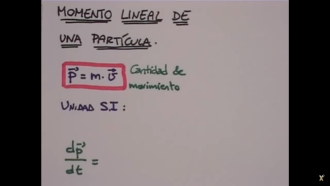 MOMENTO LINEAL DE
UNA PARTÍCULA.
p⃗ = m · v⃗ Cantidad de
movimiento
UNIDAD S.I :
dp⃗
dt =